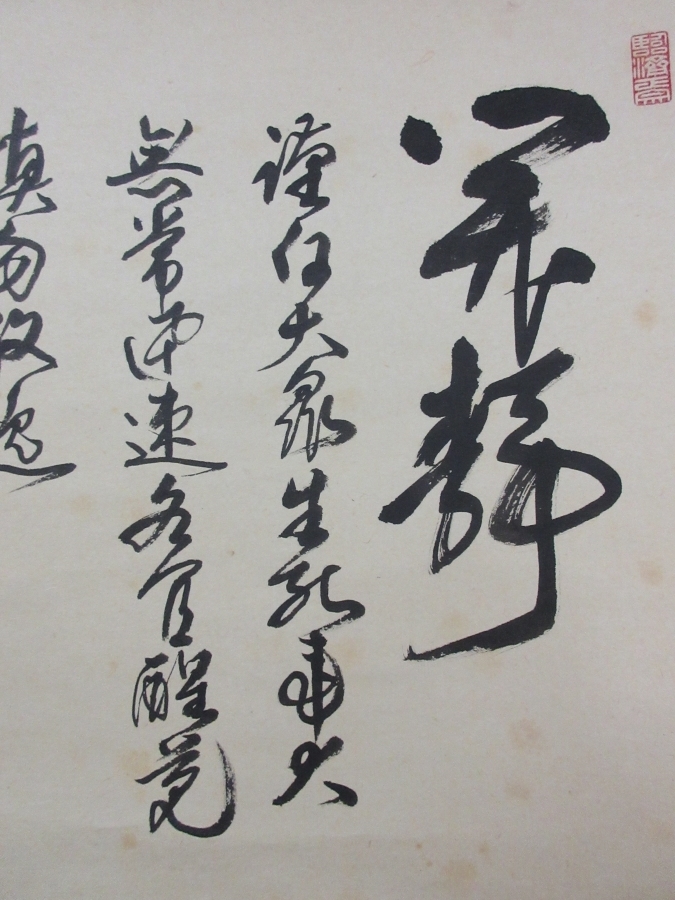 開静
謹白大衆生死事大
無常迅速各宜醒覚
慎勿放逸